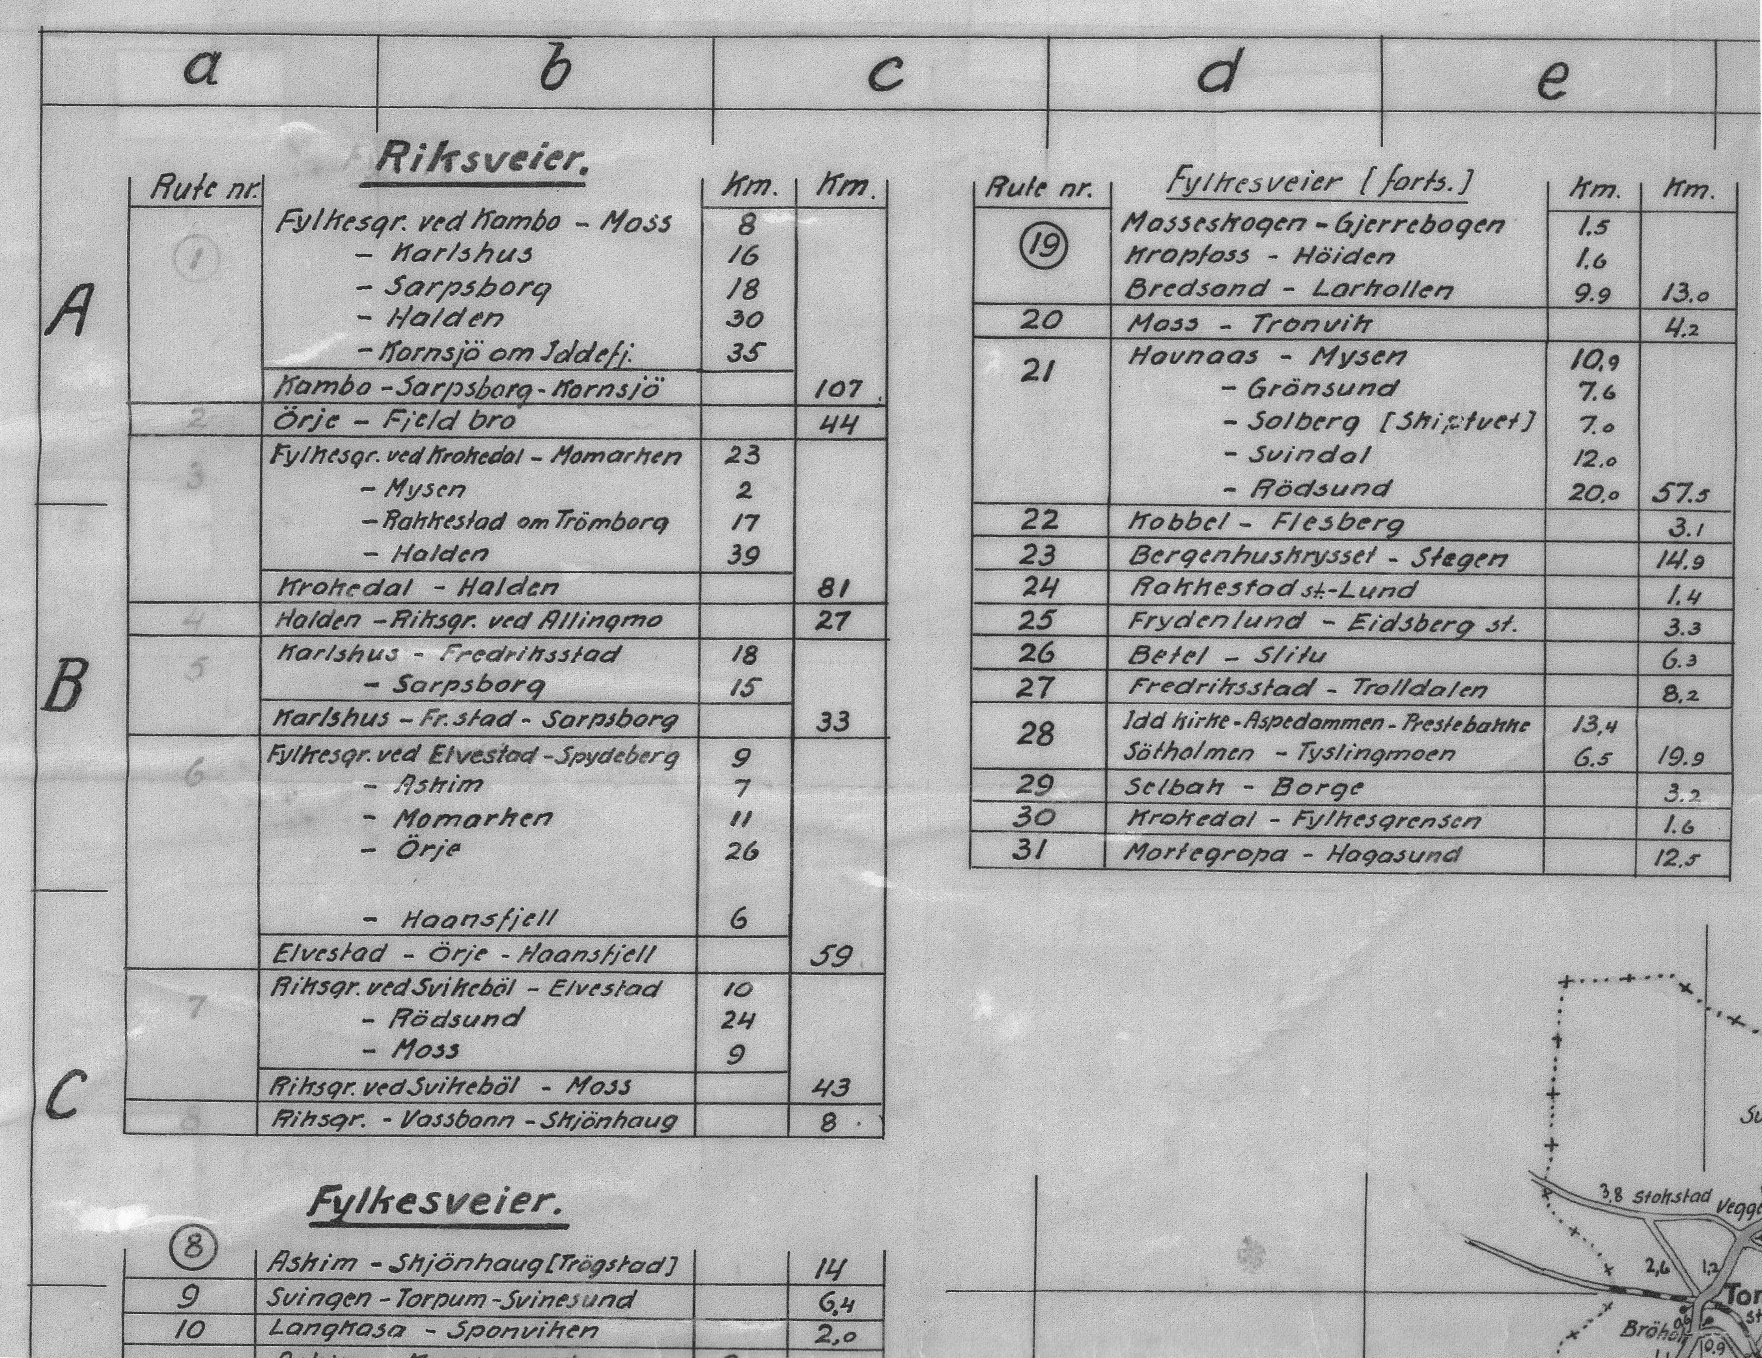 a b c d e
A
B
C
Riksveier.
Rute nr. Km. Km.
1 Fylkesgr. ved Kambo – Moss 8
– Karlshus 16
– Sarpsborg 18
– Halden 30
– Kornsjö om Iddefj. 35
Kambo – Sarpsborg - Kornsjö 107
2 Örje – Fjeld bro 44
3 Fylkesgr. ved Krokedal – Momarken 23
– Mysen 2
– Rakkestad om Trömborg 17
– Halden 39
Krokedal – Halden 81
4 Halden – Riksgr. ved Allingmo 27
5 Karlshus – Fredriksstad 18
– Sarpsborg 15
Karlshus – Fr.stad – Sarpsborg 33
6 Fylkesgr. ved Elvestad – Spydeberg 9
– Askim 7
– Momarken 11
– Örje 26
– Haansfjell 6
Elvestad – Örje – Haansfjell 59
7 Riksgr. ved Svikeböl – Elvestad 10
– Rödsund 24
– Moss 9
Riksgr. ved Svikeböl – Moss 43
8 Riksgr. – Vassbonn – Skjönhaug 8
Fylkesveier.
8 Askim – Skjönhaug [Trögstad] 14
9 Svingen – Torpum – Svinesund 6,4
10 Langkasa – Sponviken 2,0
Rute nr. Fylkesveier [forts.] Km. Km.
19 Mosseskogen – Gjerrebogen 1.5
Kropfoss – Höiden 1.6
Bredsand – Larkollen 9.9 13.0
20 Moss – Tronvik 4.2
21 Hovnaas – Mysen 10,9
– Grönsund 7.6
– Solberg [Skiptvet] 7.0
– Svindal 12.0
– Rödsund 20.0 57.5
22 Kobbel – Flesberg 3.1
23 Bergenhuskrysset – Stegen 14.9
24 Rakkestad st. – Lund 1.4
25 Frydenlund – Eidsberg st. 3.3
26 Betel – Slitu 6.3
27 Fredriksstad – Trolldalen 8,2
28 Idd kirke – Aspedammen – Prestebakke 13,4
Sötholmen – Tyslingmoen 6.5 19.9
29 Selbak – Borge 3.2
30 Krokedal – Fylkesgrensen 1.6
31 Mortegropa – Hagasund 12,5
Su
3,8 Stokstad Vegge
2,6 1,2
Tor
st
Bröholt
0.9